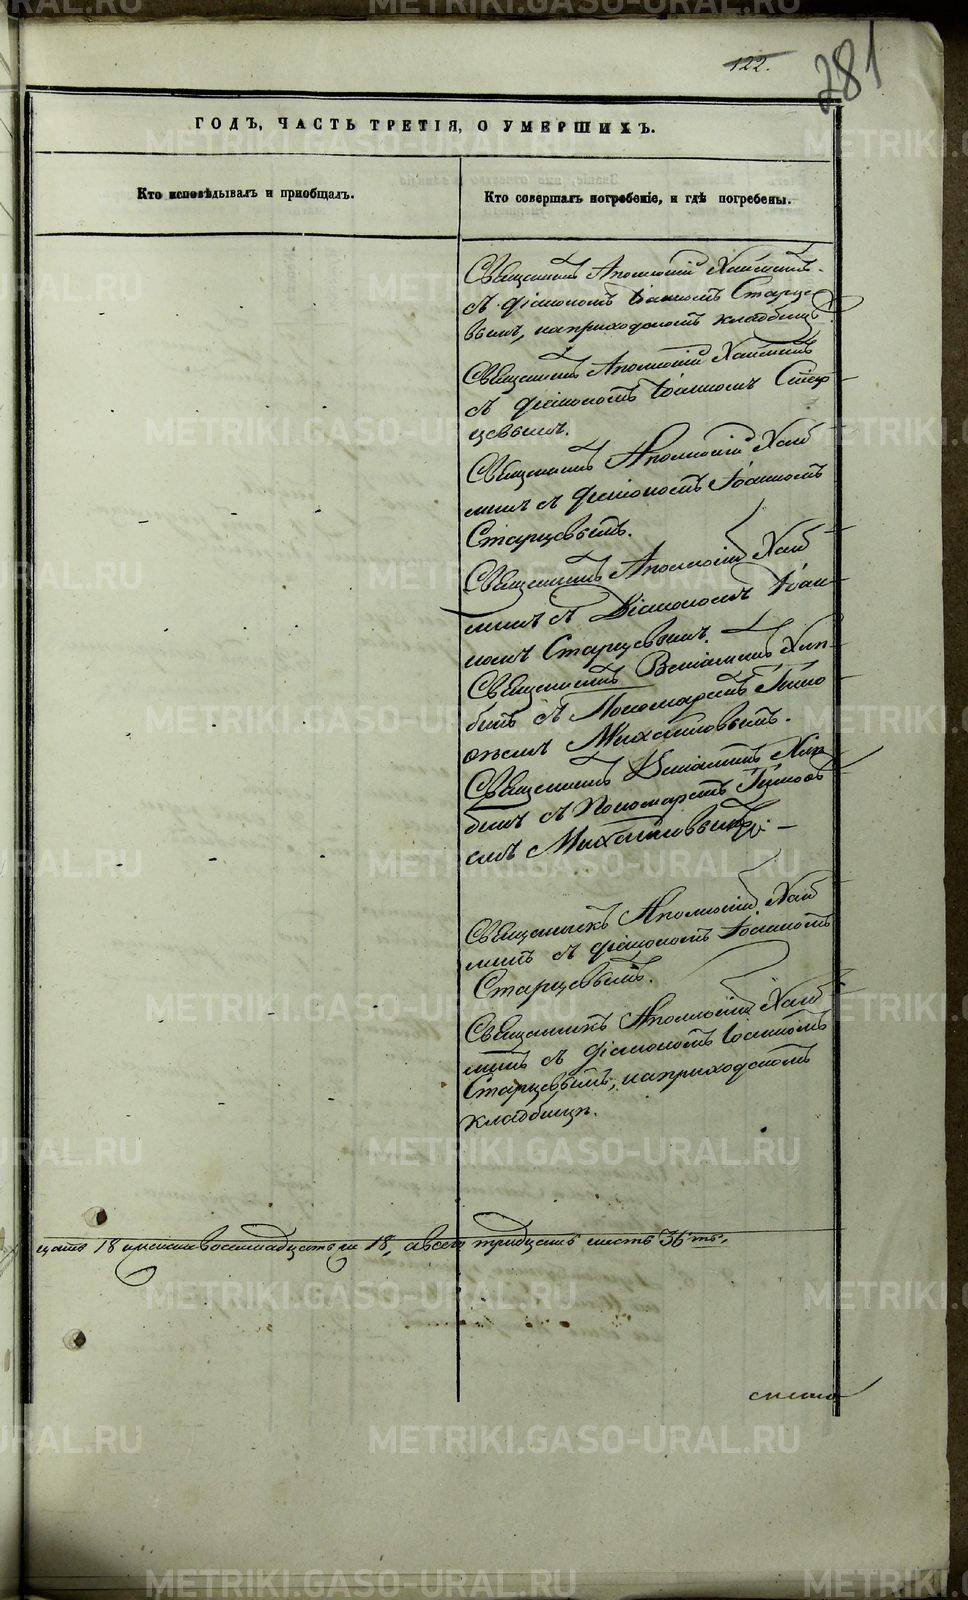 122.
281
ГОДЪ, ЧАСТЬ ТРЕТІЯ, О УМЕРШИХЪ.
Кто исповѣдывалъ и приобщалъ.
Кто совершалъ погребеніе, и гдѣ погребены.
Священникъ Аполлоній
съ діакономъ Іоанномъ Старце-
вымъ, на приходскомъ кладбищѣ.
Священникъ Аполлоній
съ діакономъ Іоанномъ Стар
цевымъ.
Священникъ Аполлоній
съ діакономъ Іоанномъ
Старцевымъ.
Священникъ Аполлоній
съ Діакономъ Іоан-
номъ Старцевымъ.
Священникъ Веніаминъ
съ Пономаремъ Тимо
Михайловымъ.
Священникъ Веніаминъ
съ Пономаремъ Тимоѳ
Михайловымъ.
Священникъ Аполлоній
съ діакономъ Іоанномъ
Старцевымъ.
Священникъ Аполлоній
съ діакономъ Іоанномъ
Старцевымъ, на приходскомъ
кладбищѣ.
цать 18 женска восемнадцать 18, а всего тридцать шесть 36ть.
METRIKI.GASO-URAL.RU